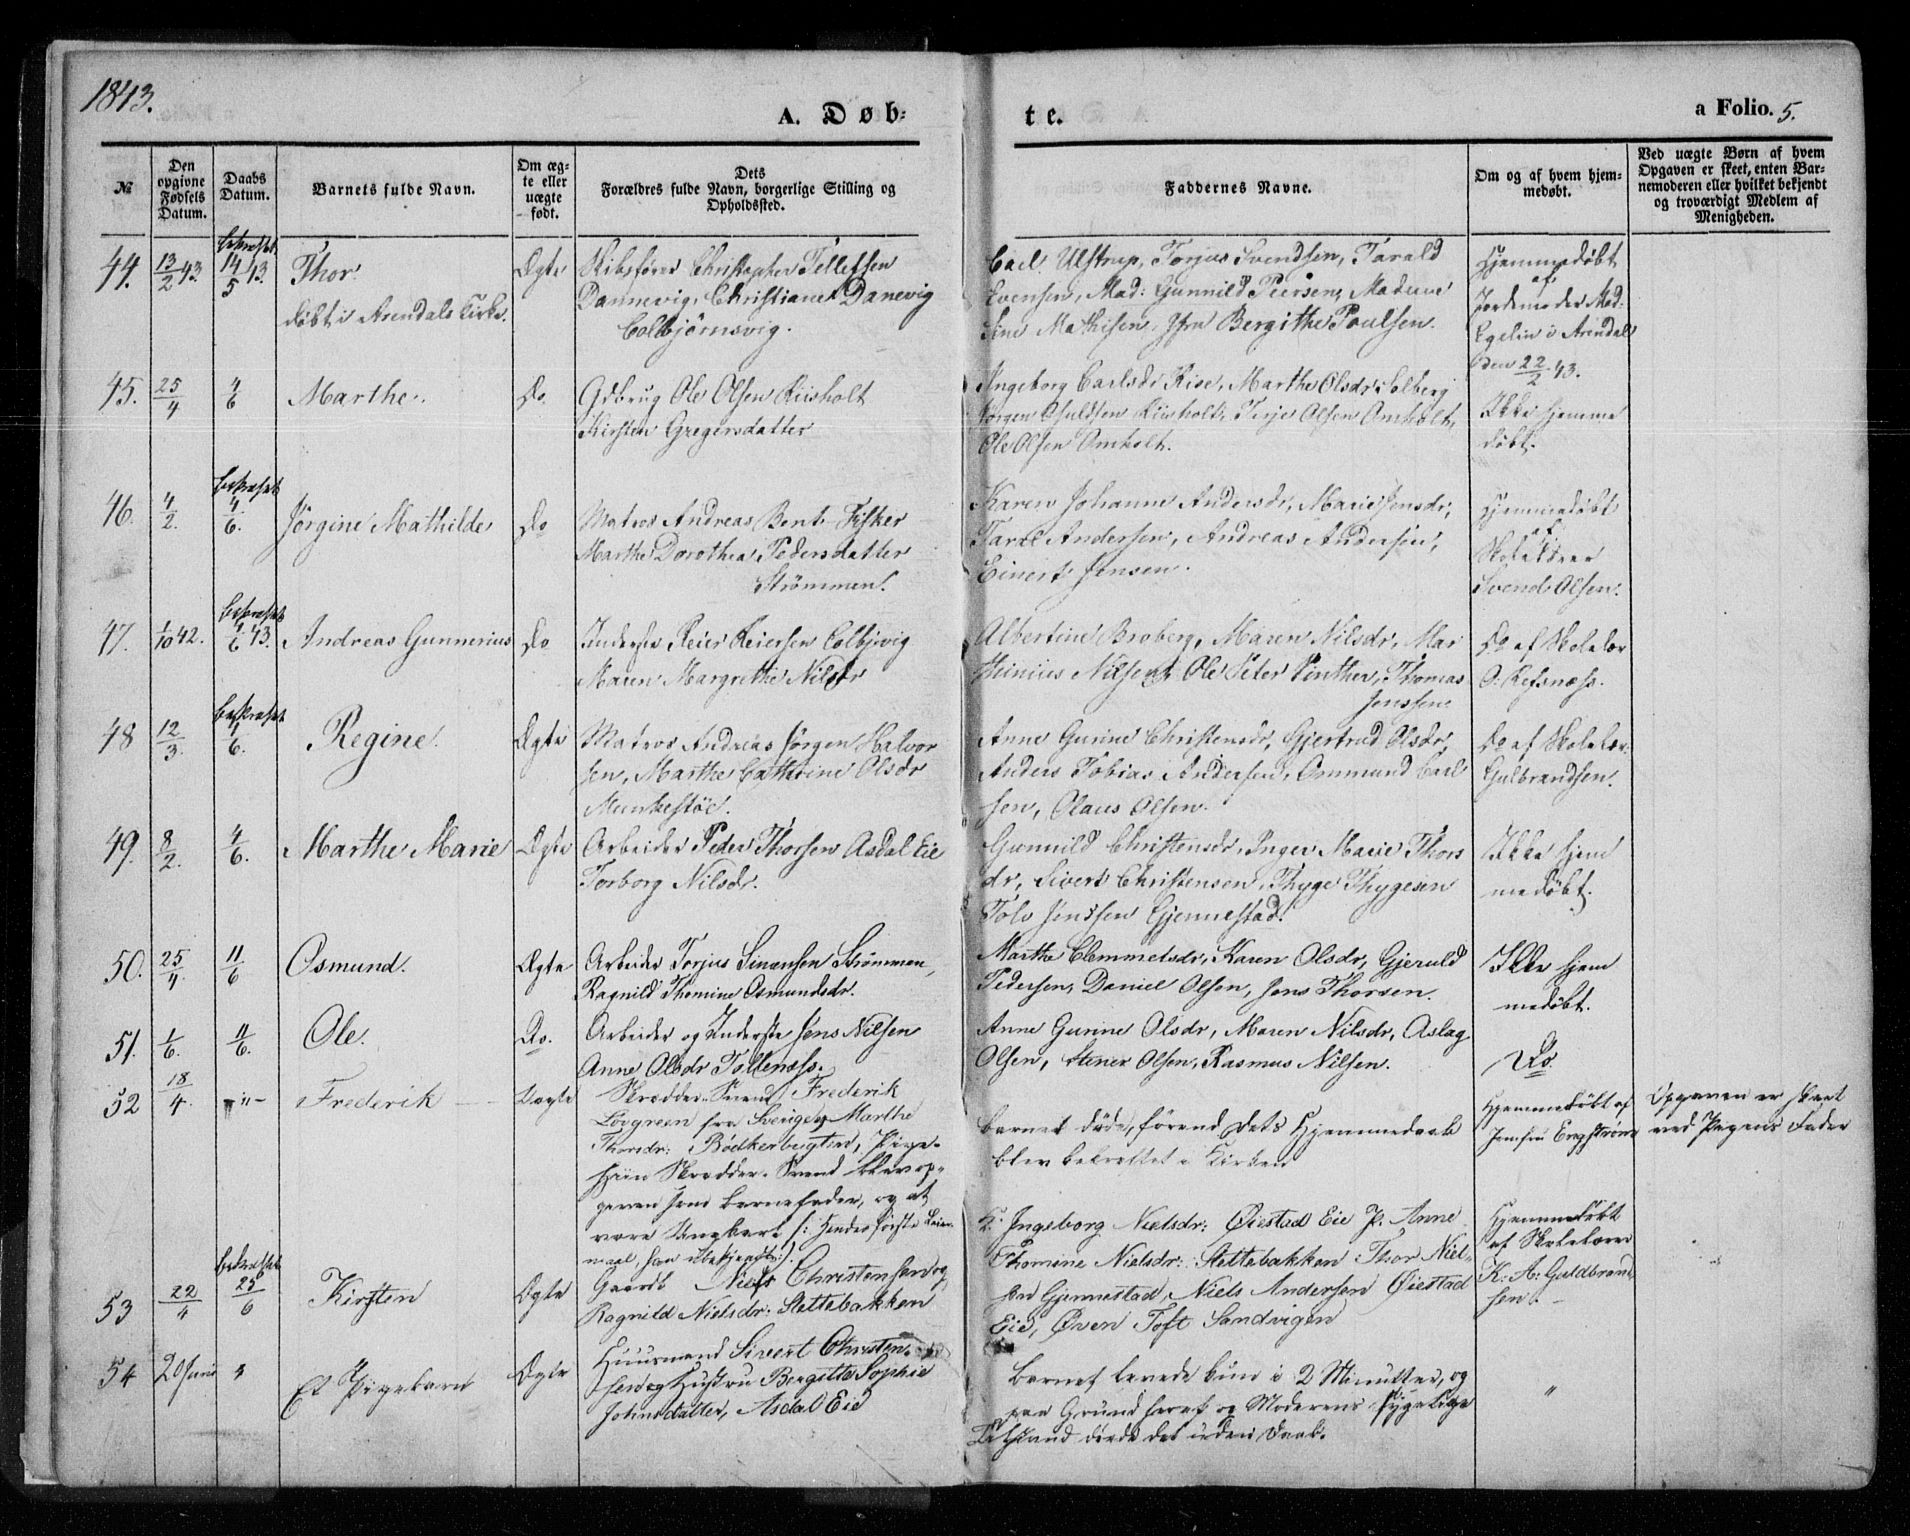 1843.
A. Døb-
te.
a Folio. 5.
№
Den opgivne Fødsels Datum.
Daabs Datum.
Barnets fulde Navn.
Om ægte eller uægte født.
Dets Forældres fulde Navn, borgerlige Stilling og Opholdssted.
Faddernes Navne.
Om og af hvem hjemmedøbt.
Ved uægte Børn af hvem Opgaven er skeet, enten Barnemoderen eller hvilket bekjendt og troværdigt Medlem af Menigheden.
44. 13/2 43. bekræftet 14/5 43.
Thor
døbt i Arendals Kirke.
Ægte
Skibsfører Christopher Tellefsen
Dannevig, Christiane Danevig
Colbjørnsvig.
Carl Ulstrup, Torjus Svendsen, Tarald
Evensen, Mad: Gunnild Peersen, Madame
Sine Mathisen, Jfru Bergithe Poulsen.
Hjemmedøbt
af
Jordemoder Mad.
Egelin i Arendal
den 22/2 43.
45. 25/4 4/6
Marthe.
Do
Gdbrug Ole Olsen Riisholt
Kirsten Gregersdatter
Ingeborg Carlsdr Rise, Marthe Olsdr Solberg
Jørgen Osuldsen Riisholt, Terje Olsen Omholt,
Ole Olsen Omholt.
Ikke hjemme
døbt.
46. 4/2. bekræftet 4/6.
Jørgine Mathilde
Do
Matros Andreas Bent. Fisker
Marthe Dorothea Pedersdatter
Strømmen.
Karen Johanne Andersdr, Marie Jensdr,
Taral Andersen, Andreas Andersen,
Einert Jensen.
Hjemmedøbt
af
Skolelærer
Svend Olsen.
47. 1/10 42. bekræftet 4/6 43.
Andreas Gunnerius
Do
Inderste Reier Reiersen Colbjvig
Maren Margrethe Nilsdr
Albertine Broberg, Maren Nilsdr, Mar
thinius Nilsen, Ole Peter Pinther, Thomas
Jenssen.
Do af Skolelær
O. Refsnæss.
48 12/3. bekræftet 4/6.
Regine.
Ægte
Matros Andreas Jørgen Halvor
sen, Marthe Cathrine Olsdr
Munkestøe.
Anne Gurine Christensdr, Gjertrud Olsdr,
Anders Tobias Andersen, Ommund Carl
sen, Olaus Olsen.
Do af Skolelær.
Gulbrandsen.
49. 8/2. 4/6.
Marthe Marie
Ægte
Arbeider Peder Thorsen Asdal Eie
Torborg Nilsdr.
Gunnild Christensdr, Inger Marie Thors
dr, Sivert Christensen, Thyge Thygesen
Tolv Jenssen Gjennestad.
Ikke hjem
medøbt.
50. 25/4. 11/6
Osmund.
Ægte
Arbeider Torjus Simensen Strømmen,
Ragnild Thomine Osmundsdr.
Marthe Clemmetsdr, Karen Olsdr, Gjeruld
Pedersen, Daniel Olsen, Jens Thorsen.
Ikke hjem
medøbt.
51. 1/6. 11/6.
Ole.
Do.
Arbeider og Inderste Jens Nilsen
Anne Olsdr Tollenæss.
Anne Gurine Olsdr, Maren Nilsdr, Aslag
Olsen, Stener Olsen, Rasmus Nilsen.
Do.
52 18/4. -"-
Frederik
Uægte
Skrædder-Svend Frederik
Lövgreen fra Sverige og Marthe
Thorsdr: Bødkerbugten, Pige.
Hiin Skrædder-Svend blev op-
given som Barnefader, og at
være Ungkarl /: Hendes første Leier-
maal, han ubekjendt:/.
Barnet døde, førend dets Hjemmedaab
blev bekræftet i Kirken
Hjemmedøbt af
Jomfru Engstrøm
Opgaven er skeet
ved Pigens Fader
53 22/4 bekræftet 25/6
Kirsten
Ægte
Gaardb Niels Christensen og
Ragnild Nielsdr: Slettebakken
K. Ingeborg Nielsdr: Øiestad Eie P. Anne
Thomine Nielsdr: Slettebakken: Thor Niel-
sen Gjennestad, Niels Andersen Øiestad
Eie, Øven Toft Sandvigen
Hjemmedøbt
af Skolelærer
K: A: Guldbrand-
sen.
54 20 Juni "
Et Pigebarn
Ægte
Huusmand Sivert Christen-
sen og Hustru Bergitte Sophie
Johnsdatter, Asdal Eie
Barnet levede kun i 2 Minutter, og
paa Grund heraf og Moderens sygelige
Tilstand døde det uden Daab.
"